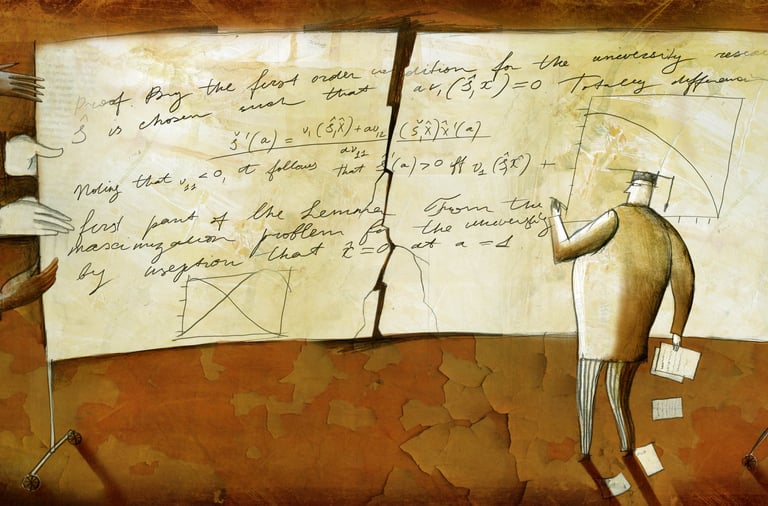 Proof. By the first order condition for the university
ŝ is chosen such that a v₁(ŝ,x̂)=0 Totally
ŝ'(a) = v₁(ŝ,x̂)+av₁₂(ŝ,x̂)x̂'(a) / av₁₁
Noting that v₁₁<0, it follows that ŝ'(a)>0 iff v₁(ŝ,x̂) +
first part of the Lemma From the
maximization problem for the university
by that = 0 at a = 1